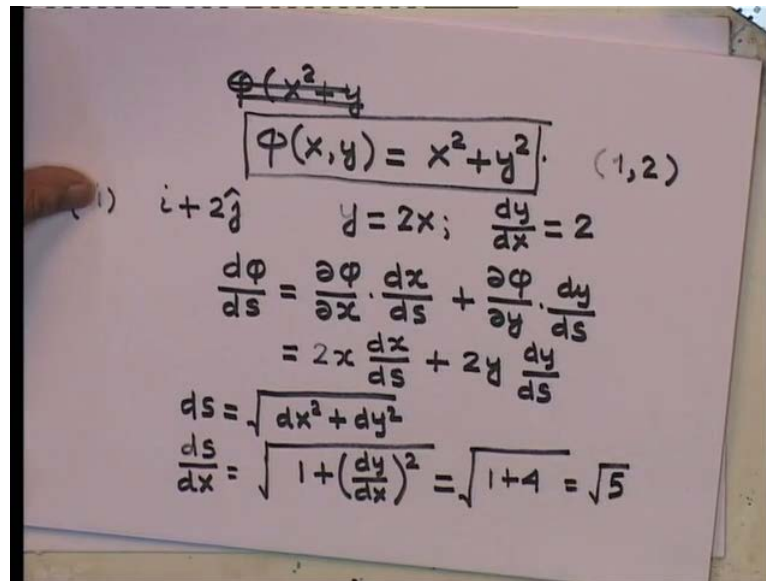 φ(x²+y
φ(x,y) = x²+y². (1,2)
(i) i+2ĵ y=2x; dy/dx = 2
dφ/ds = ∂φ/∂x · dx/ds + ∂φ/∂y · dy/ds
= 2x dx/ds + 2y dy/ds
ds = √(dx²+dy²)
ds/dx = √(1+(dy/dx)²) = √(1+4) = √5